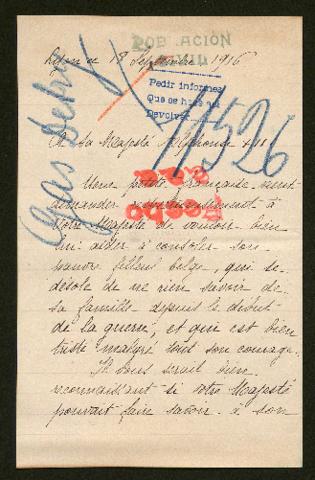 POBLACIÓN
CIVIL
Lyon ce 18 Septembre 1916
Pedir informes
Que se haga
Devolver
11526
A Sa Majesté Alphonse XIII
Une petite Française vient
demander respectueusement à
Votre Majesté de vouloir bien
lui aider à consoler son
pauvre filleul belge, qui se
désole de ne rien savoir de
sa famille depuis le début
de la guerre, et qui est bien
triste malgré tout son courage.
Il vous serait bien
reconnaissant si votre Majesté
pouvait faire savoir à son